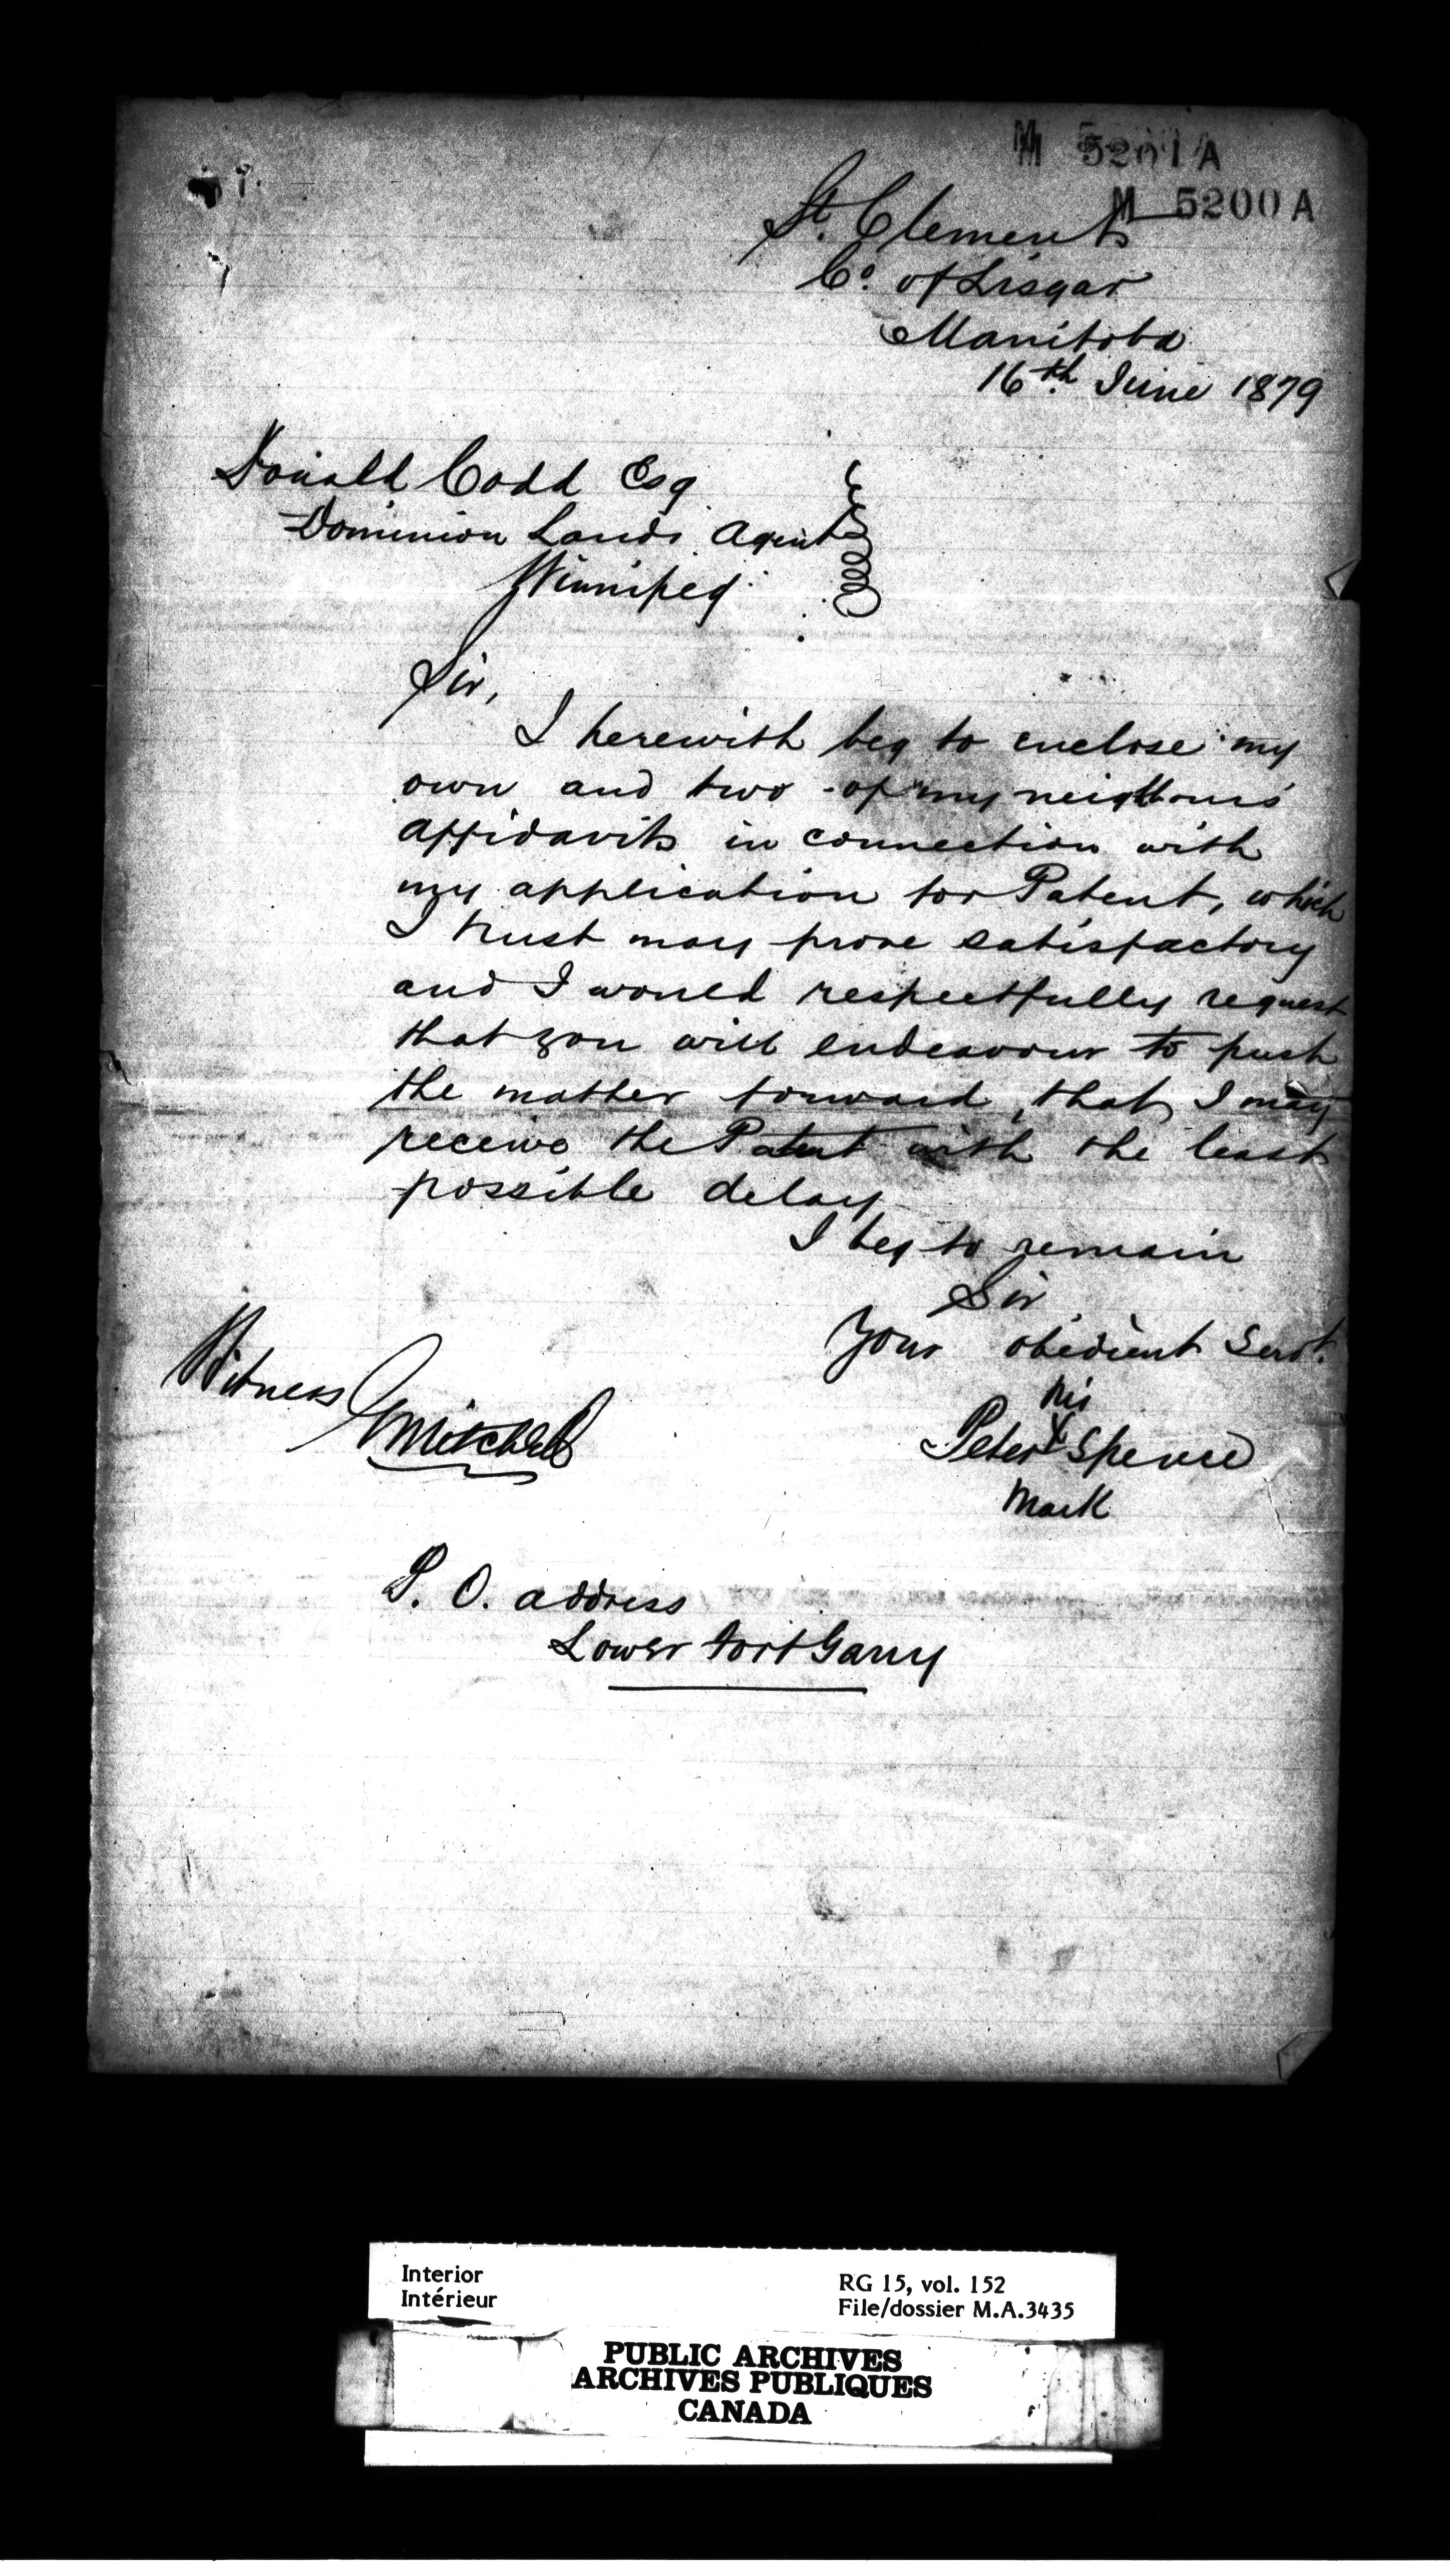 M 5201 A
M 5200 A
St. Clements
Co. of Lisgar
Manitoba
16th June 1879
Donald Codd Esq
Dominion Lands Agent
Winnipeg
Sir,
I herewith beg to enclose my
own and two of my neighbours
affidavits in connection with
my application for Patent, which
I trust may prove satisfactory
and I would respectfully request
that you will endeavour to push
the matter forward, that I may
receive the Patent with the least
possible delay
I beg to remain
Sir
Your obedient Servt.
his
Peter X Spence
mark
Witness
Mitchell
P. O. address
Lower Fort Garry
Interior
Intérieur
RG 15, vol. 152
File/dossier M.A.3435
PUBLIC ARCHIVES
ARCHIVES PUBLIQUES
CANADA